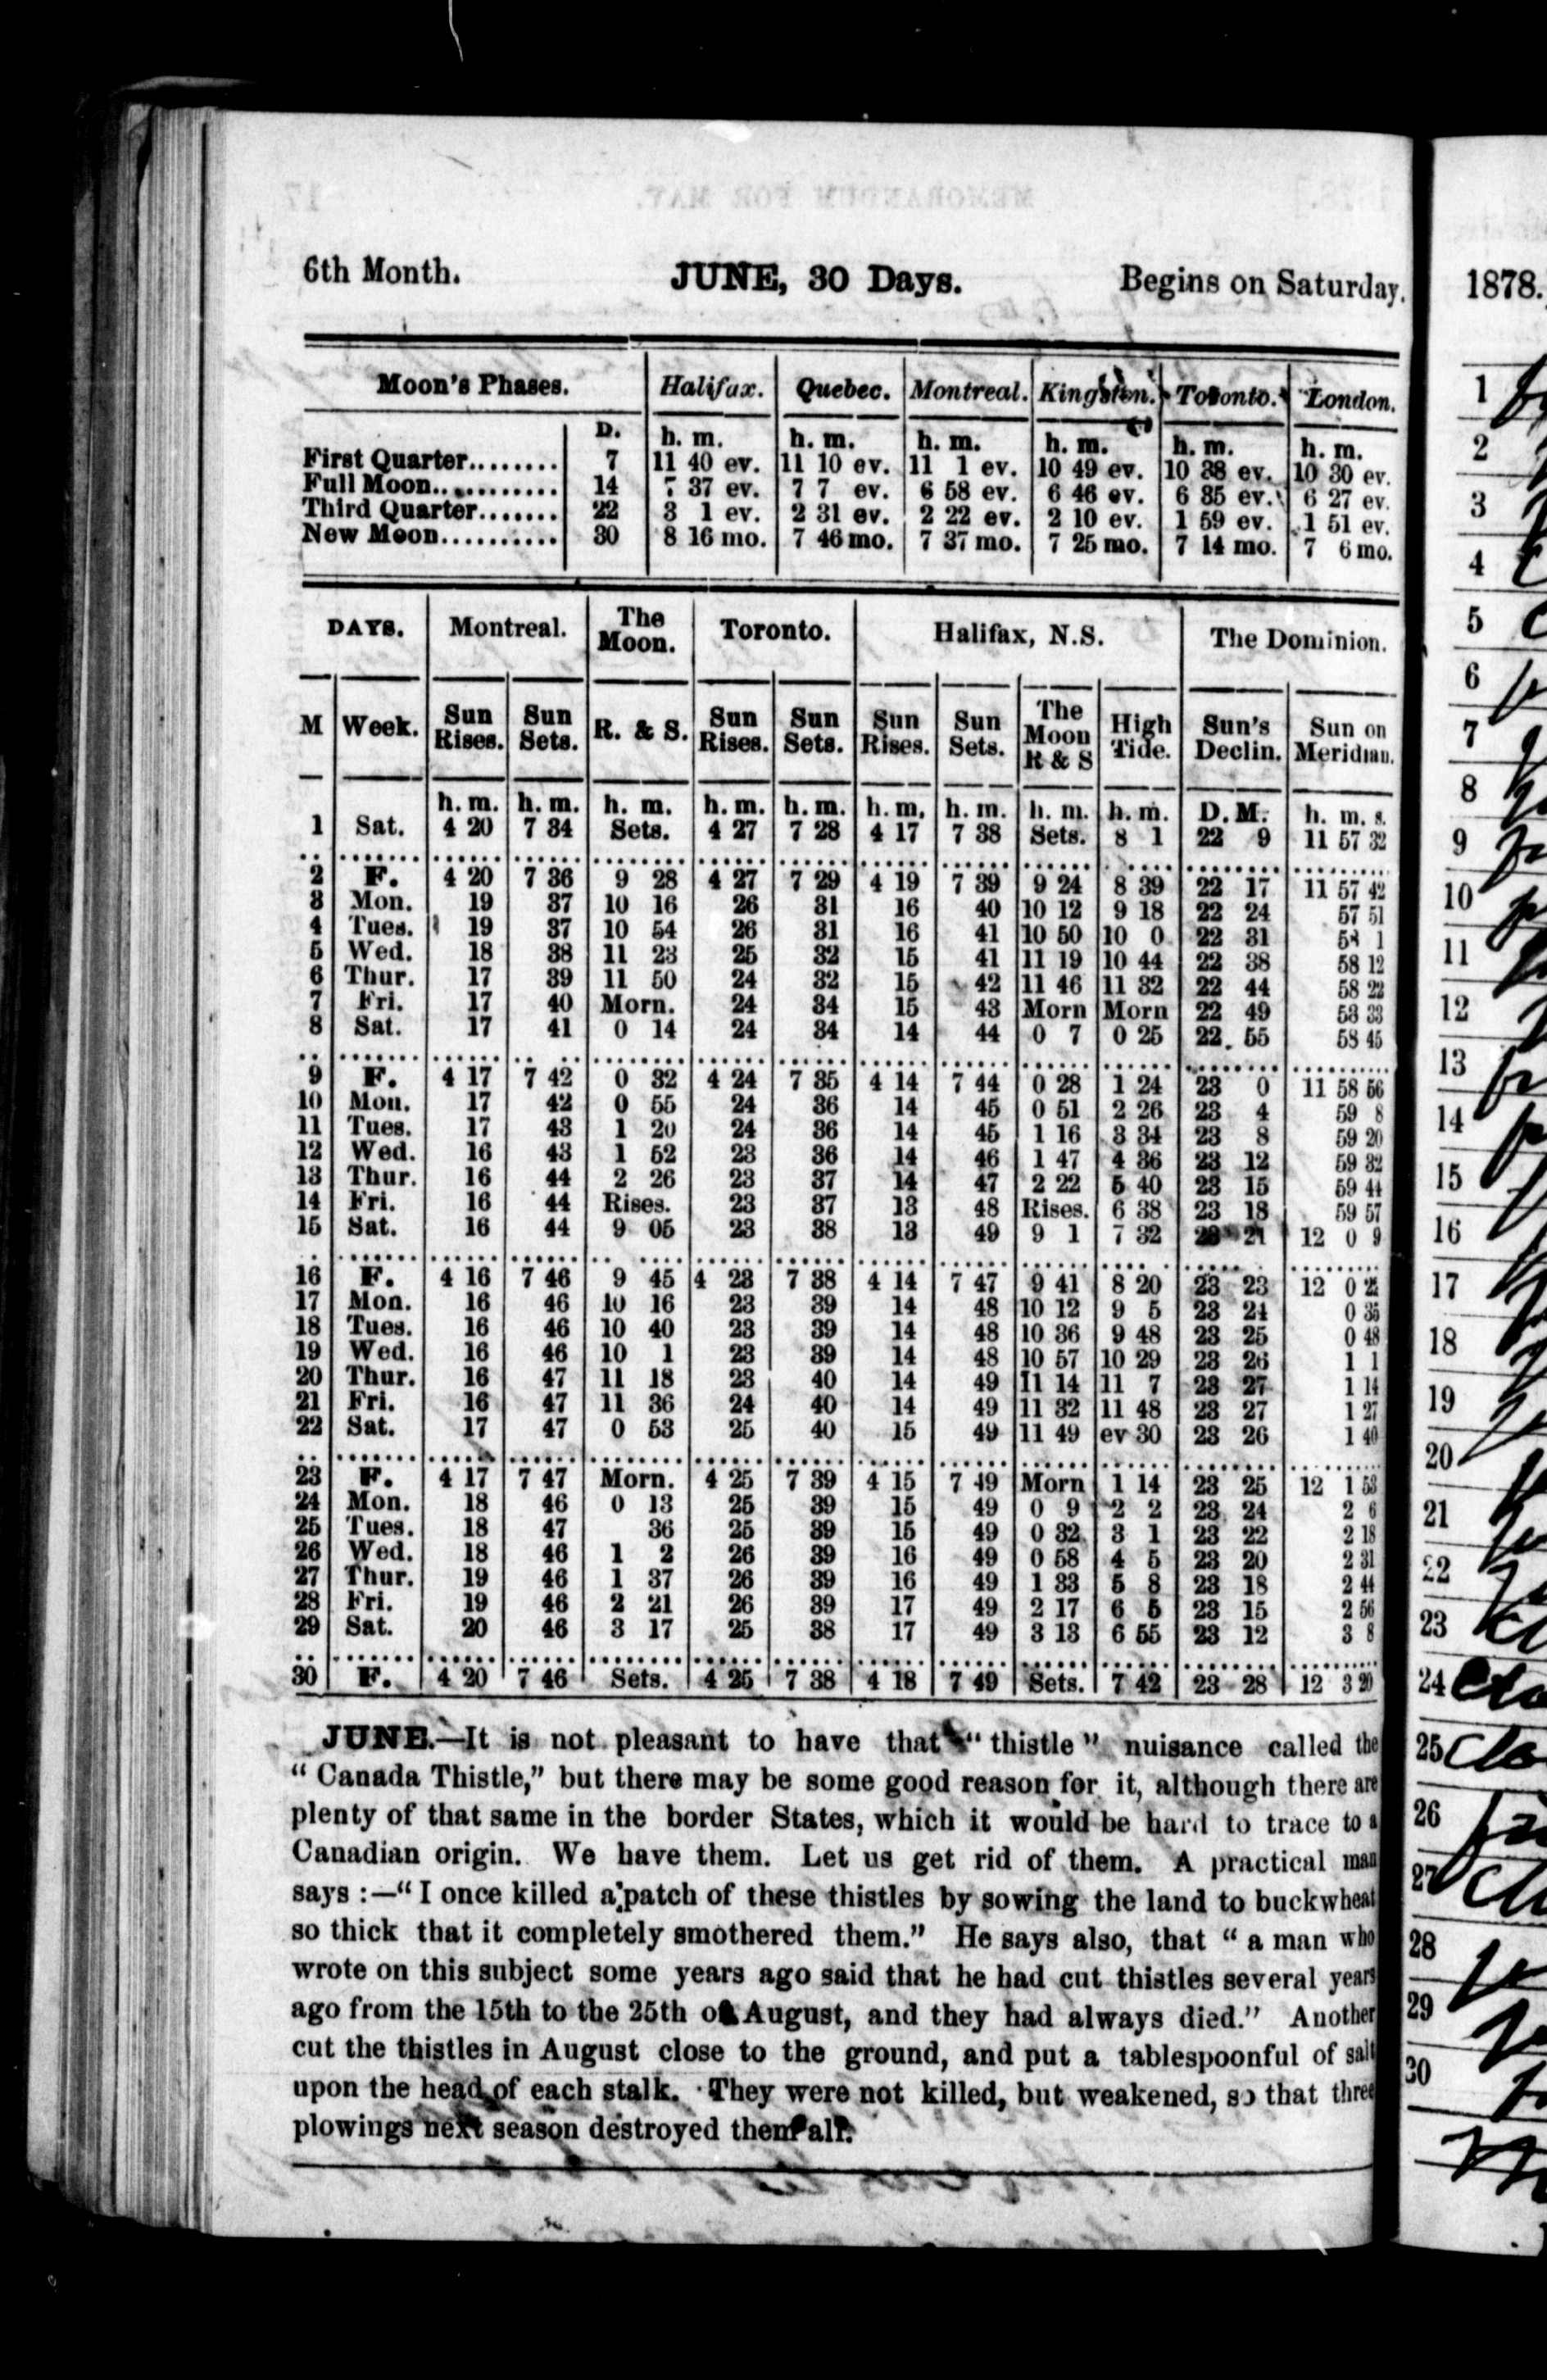 6th Month. JUNE, 30 Days. Begins on Saturday.
Moon's Phases. Halifax. Quebec. Montreal. Kingston. Toronto. London.
D. h. m. h. m. h. m. h. m. h. m. h. m.
First Quarter........ 7 11 40 ev. 11 10 ev. 11 1 ev. 10 49 ev. 10 38 ev. 10 30 ev.
Full Moon............ 14 7 37 ev. 7 7 ev. 6 58 ev. 6 46 ev. 6 35 ev. 6 27 ev.
Third Quarter....... 22 3 1 ev. 2 31 ev. 2 22 ev. 2 10 ev. 1 59 ev. 1 51 ev.
New Moon.......... 30 8 16 mo. 7 46 mo. 7 37 mo. 7 25 mo. 7 14 mo. 7 6 mo.
DAYS. Montreal. The Moon. Toronto. Halifax, N.S. The Dominion.
M Week. Sun Rises. Sun Sets. R. & S. Sun Rises. Sun Sets. Sun Rises. Sun Sets. The Moon R & S High Tide. Sun's Declin. Sun on Meridian.
h. m. h. m. h. m. h. m. h. m. h. m. h. m. h. m. h. m. D. M. h. m. s.
1 Sat. 4 20 7 34 Sets. 4 27 7 28 4 17 7 38 Sets. 8 1 22 9 11 57 32
2 F. 4 20 7 36 9 28 4 27 7 29 4 19 7 39 9 24 8 39 22 17 11 57 42
3 Mon. 19 37 10 16 26 31 16 40 10 12 9 18 22 24 57 51
4 Tues. 19 37 10 54 26 31 16 41 10 50 10 0 22 31 58 1
5 Wed. 18 38 11 23 25 32 15 41 11 19 10 44 22 38 58 12
6 Thur. 17 39 11 50 24 32 15 42 11 46 11 32 22 44 58 22
7 Fri. 17 40 Morn. 24 34 15 43 Morn Morn 22 49 58 33
8 Sat. 17 41 0 14 24 34 14 44 0 7 0 25 22 55 58 45
9 F. 4 17 7 42 0 32 4 24 7 35 4 14 7 44 0 28 1 24 23 0 11 58 56
10 Mon. 17 42 0 55 24 36 14 45 0 51 2 26 23 4 59 8
11 Tues. 17 43 1 20 24 36 14 45 1 16 3 34 23 8 59 20
12 Wed. 16 43 1 52 23 36 14 46 1 47 4 36 23 12 59 32
13 Thur. 16 44 2 26 23 37 14 47 2 22 5 40 23 15 59 44
14 Fri. 16 44 Rises. 23 37 13 48 Rises. 6 38 23 18 59 57
15 Sat. 16 44 9 05 23 38 13 49 9 1 7 32 23 21 12 0 9
16 F. 4 16 7 46 9 45 4 23 7 38 4 14 7 47 9 41 8 20 23 23 12 0
17 Mon. 16 46 10 16 23 39 14 48 10 12 9 5 23 24 0 35
18 Tues. 16 46 10 40 23 39 14 48 10 36 9 48 23 25 0 48
19 Wed. 16 46 10 1 23 39 14 48 10 57 10 29 23 26 1 1
20 Thur. 16 47 11 18 23 40 14 49 11 14 11 7 23 27 1 14
21 Fri. 16 47 11 36 24 40 14 49 11 32 11 48 23 27 1 27
22 Sat. 17 47 0 53 25 40 15 49 11 49 ev 30 23 26 1 40
23 F. 4 17 7 47 Morn. 4 25 7 39 4 15 7 49 Morn 1 14 23 25 12 1 53
24 Mon. 18 46 0 13 25 39 15 49 0 9 2 2 23 24 2 6
25 Tues. 18 47 36 25 39 15 49 0 32 3 1 23 22 2 18
26 Wed. 18 46 1 2 26 39 16 49 0 58 4 5 23 20 2 31
27 Thur. 19 46 1 37 26 39 16 49 1 33 5 8 23 18 2 44
28 Fri. 19 46 2 21 26 39 17 49 2 17 6 5 23 15 2 56
29 Sat. 20 46 3 17 25 38 17 49 3 13 6 55 23 12 3 8
30 F. 4 20 7 46 Sets. 4 25 7 38 4 18 7 49 Sets. 7 42 23 28 12 3 20
JUNE.—It is not pleasant to have that "thistle" nuisance called the
"Canada Thistle," but there may be some good reason for it, although there are
plenty of that same in the border States, which it would be hard to trace to a
Canadian origin. We have them. Let us get rid of them. A practical man
says :—"I once killed a patch of these thistles by sowing the land to buckwheat
so thick that it completely smothered them." He says also, that "a man who
wrote on this subject some years ago said that he had cut thistles several years
ago from the 15th to the 25th of August, and they had always died." Another
cut the thistles in August close to the ground, and put a tablespoonful of salt
upon the head of each stalk. They were not killed, but weakened, so that three
plowings next season destroyed them all.
1878.
1
2
3
4
5
6
7
8
9
10
11
12
13
14
15
16
17
18
19
20
21
22
23
24
25
26
27
28
29
30